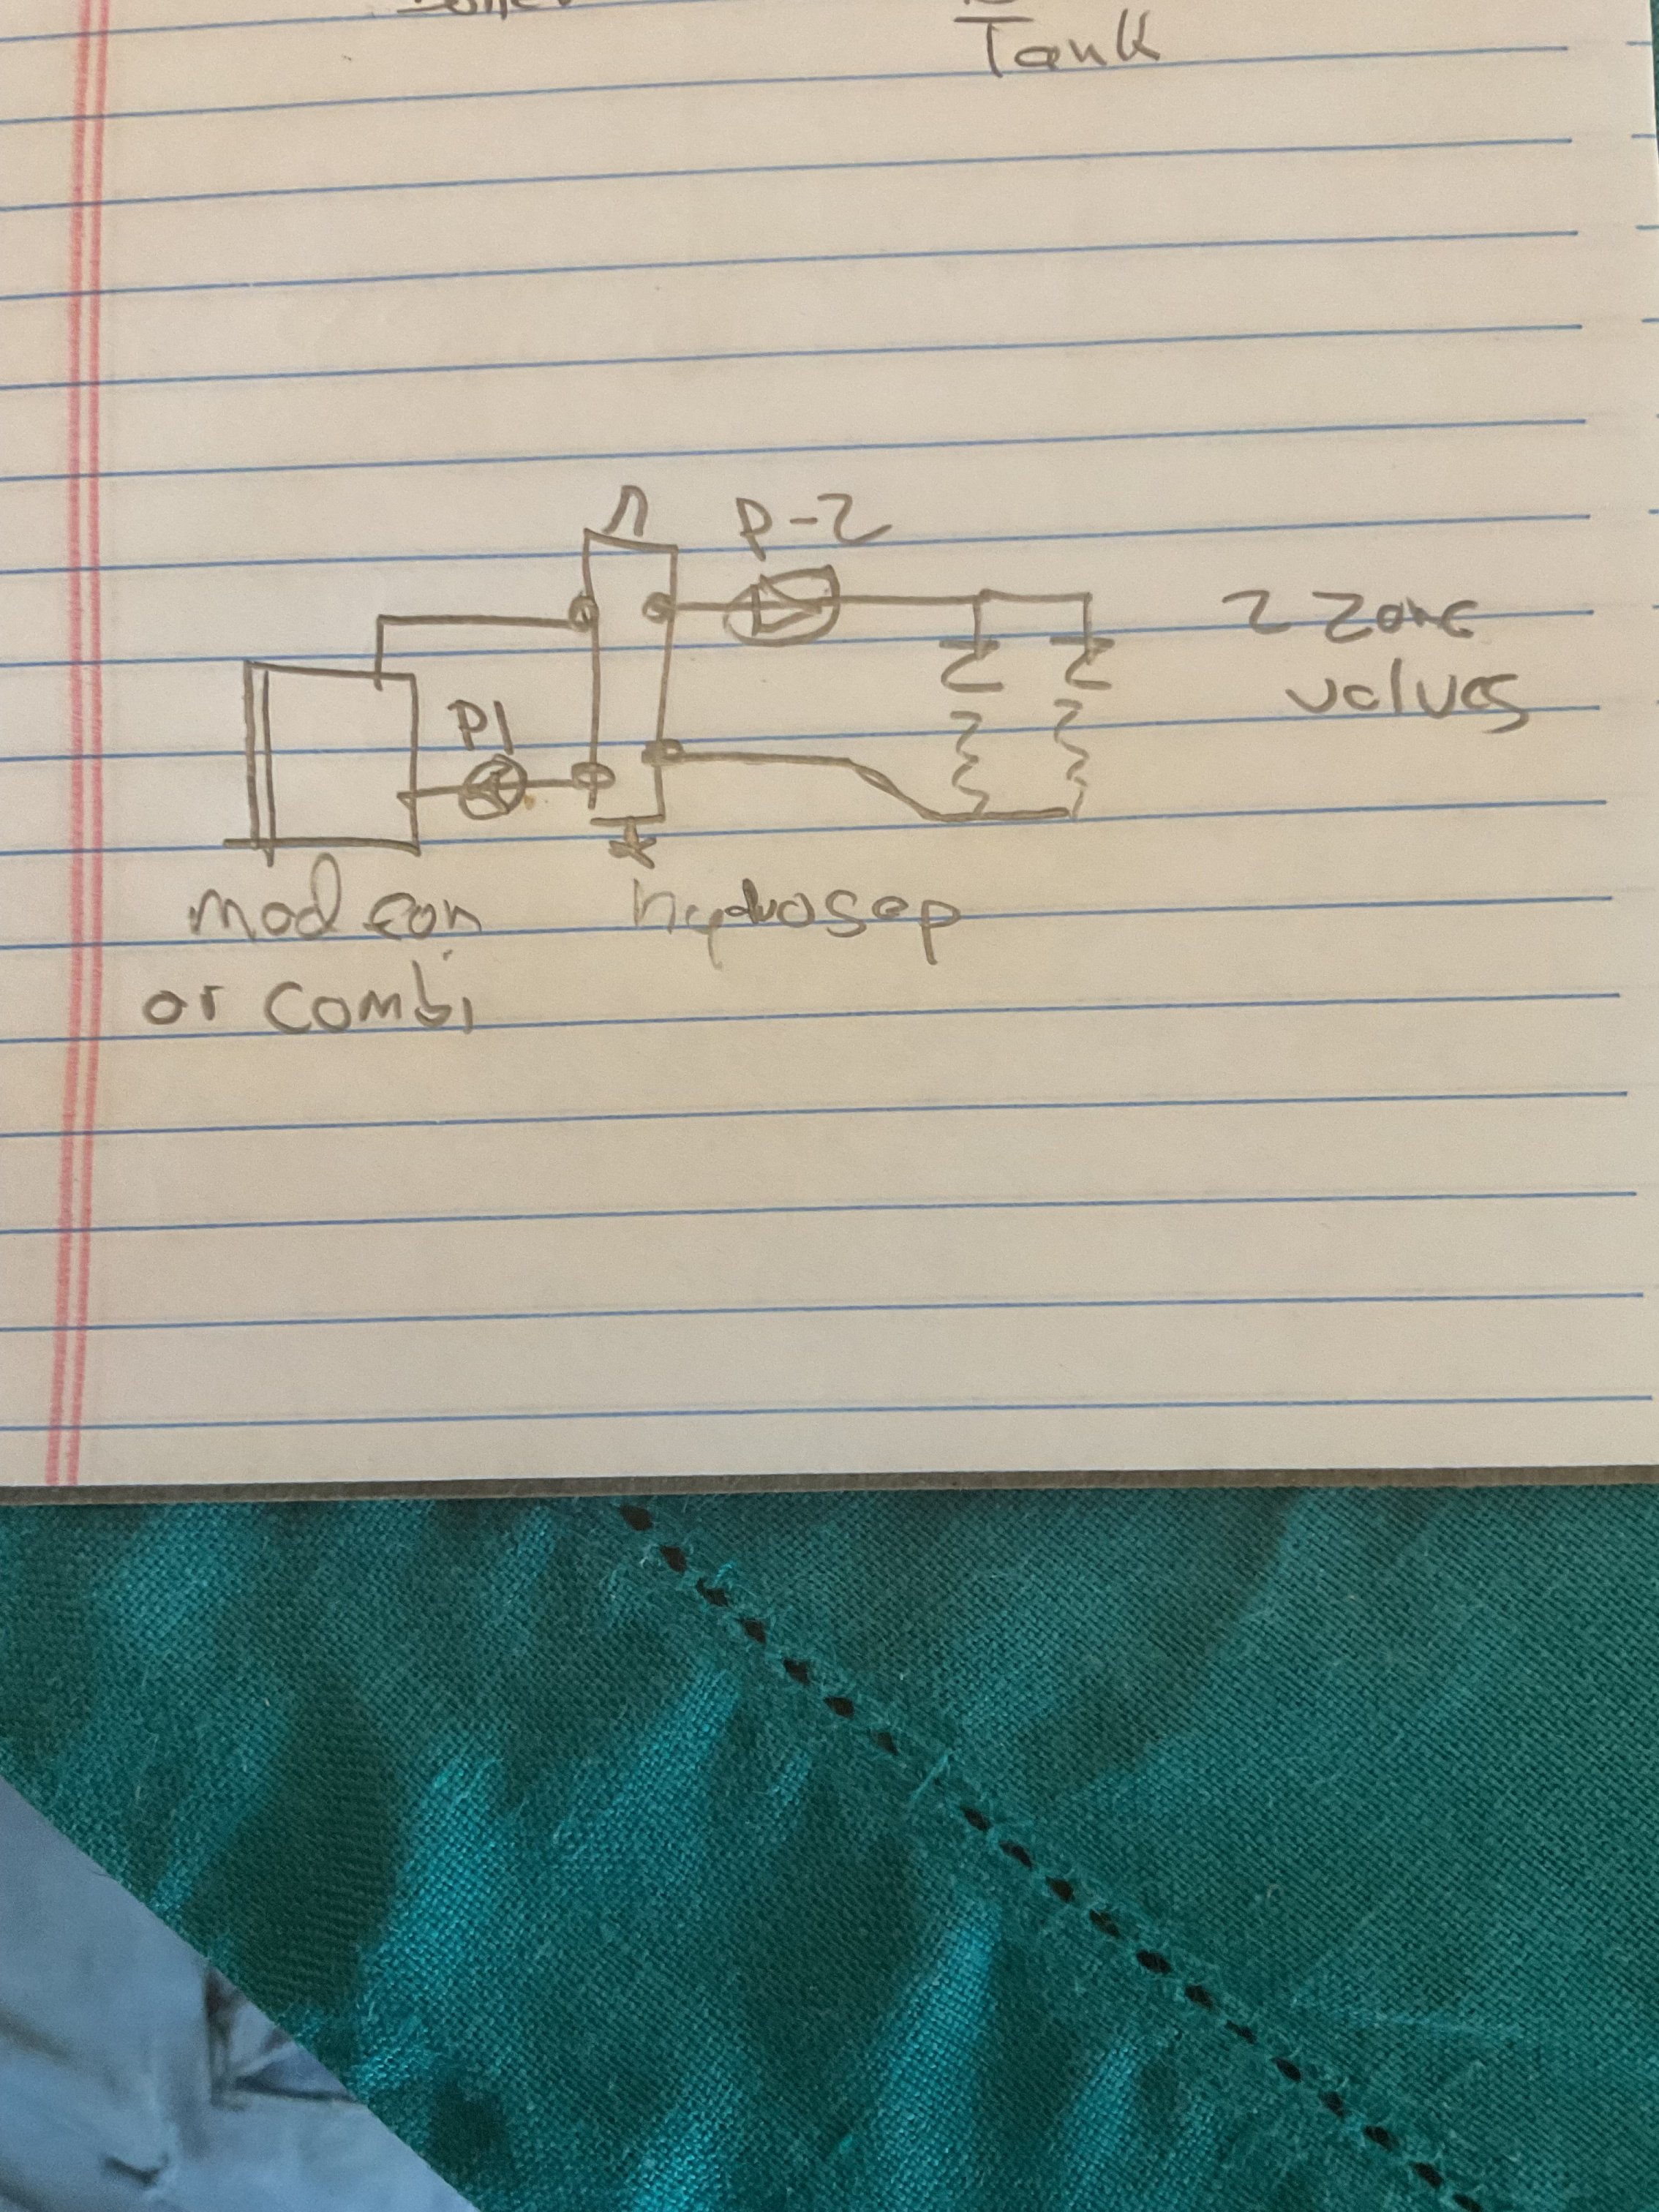 Tank
P-2
2 Zone
valves
P1
mod con hydrosep
or combi